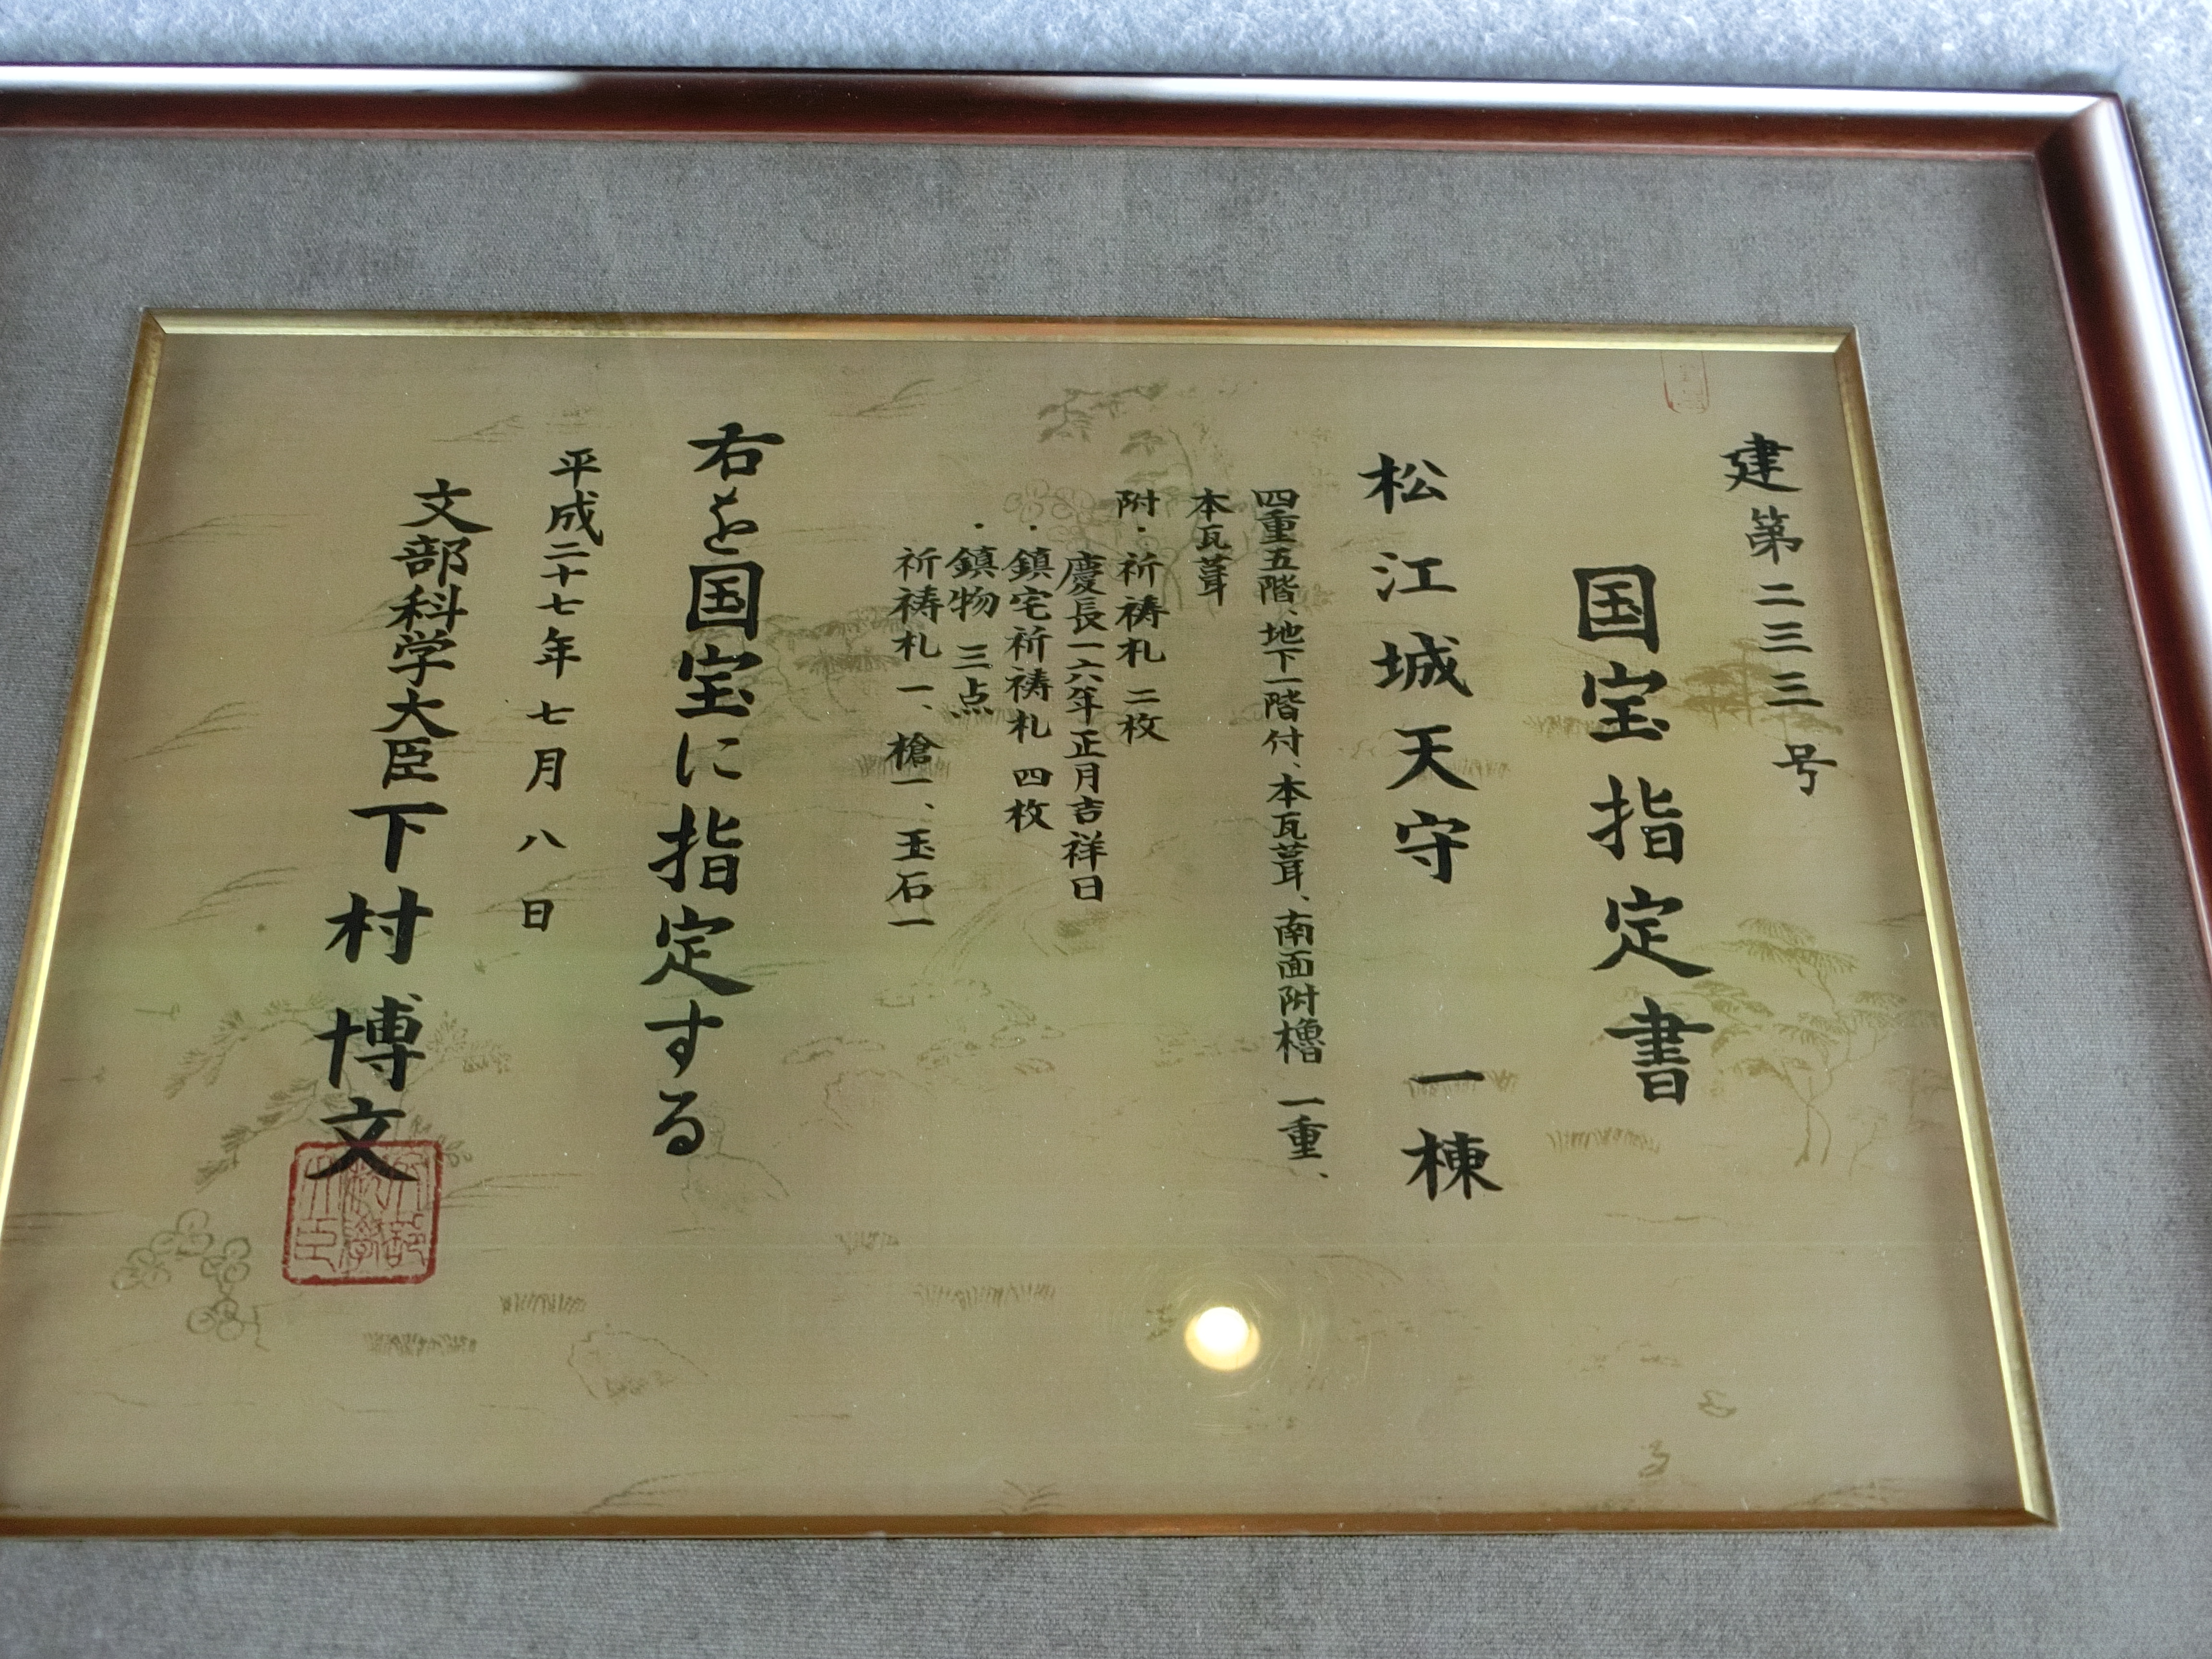 建第二三三号
国宝指定書
松江城天守 一棟
四重五階、地下一階付、本瓦葺、南面附櫓 一重、
本瓦葺
附・祈祷札 二枚
慶長一六年正月吉祥日
・鎮宅祈祷札 四枚
・鎮物 三点
祈祷札 一、槍一、玉石一
右を国宝に指定する
平成二十七年七月八日
文部科学大臣 下村博文
文部科学大臣